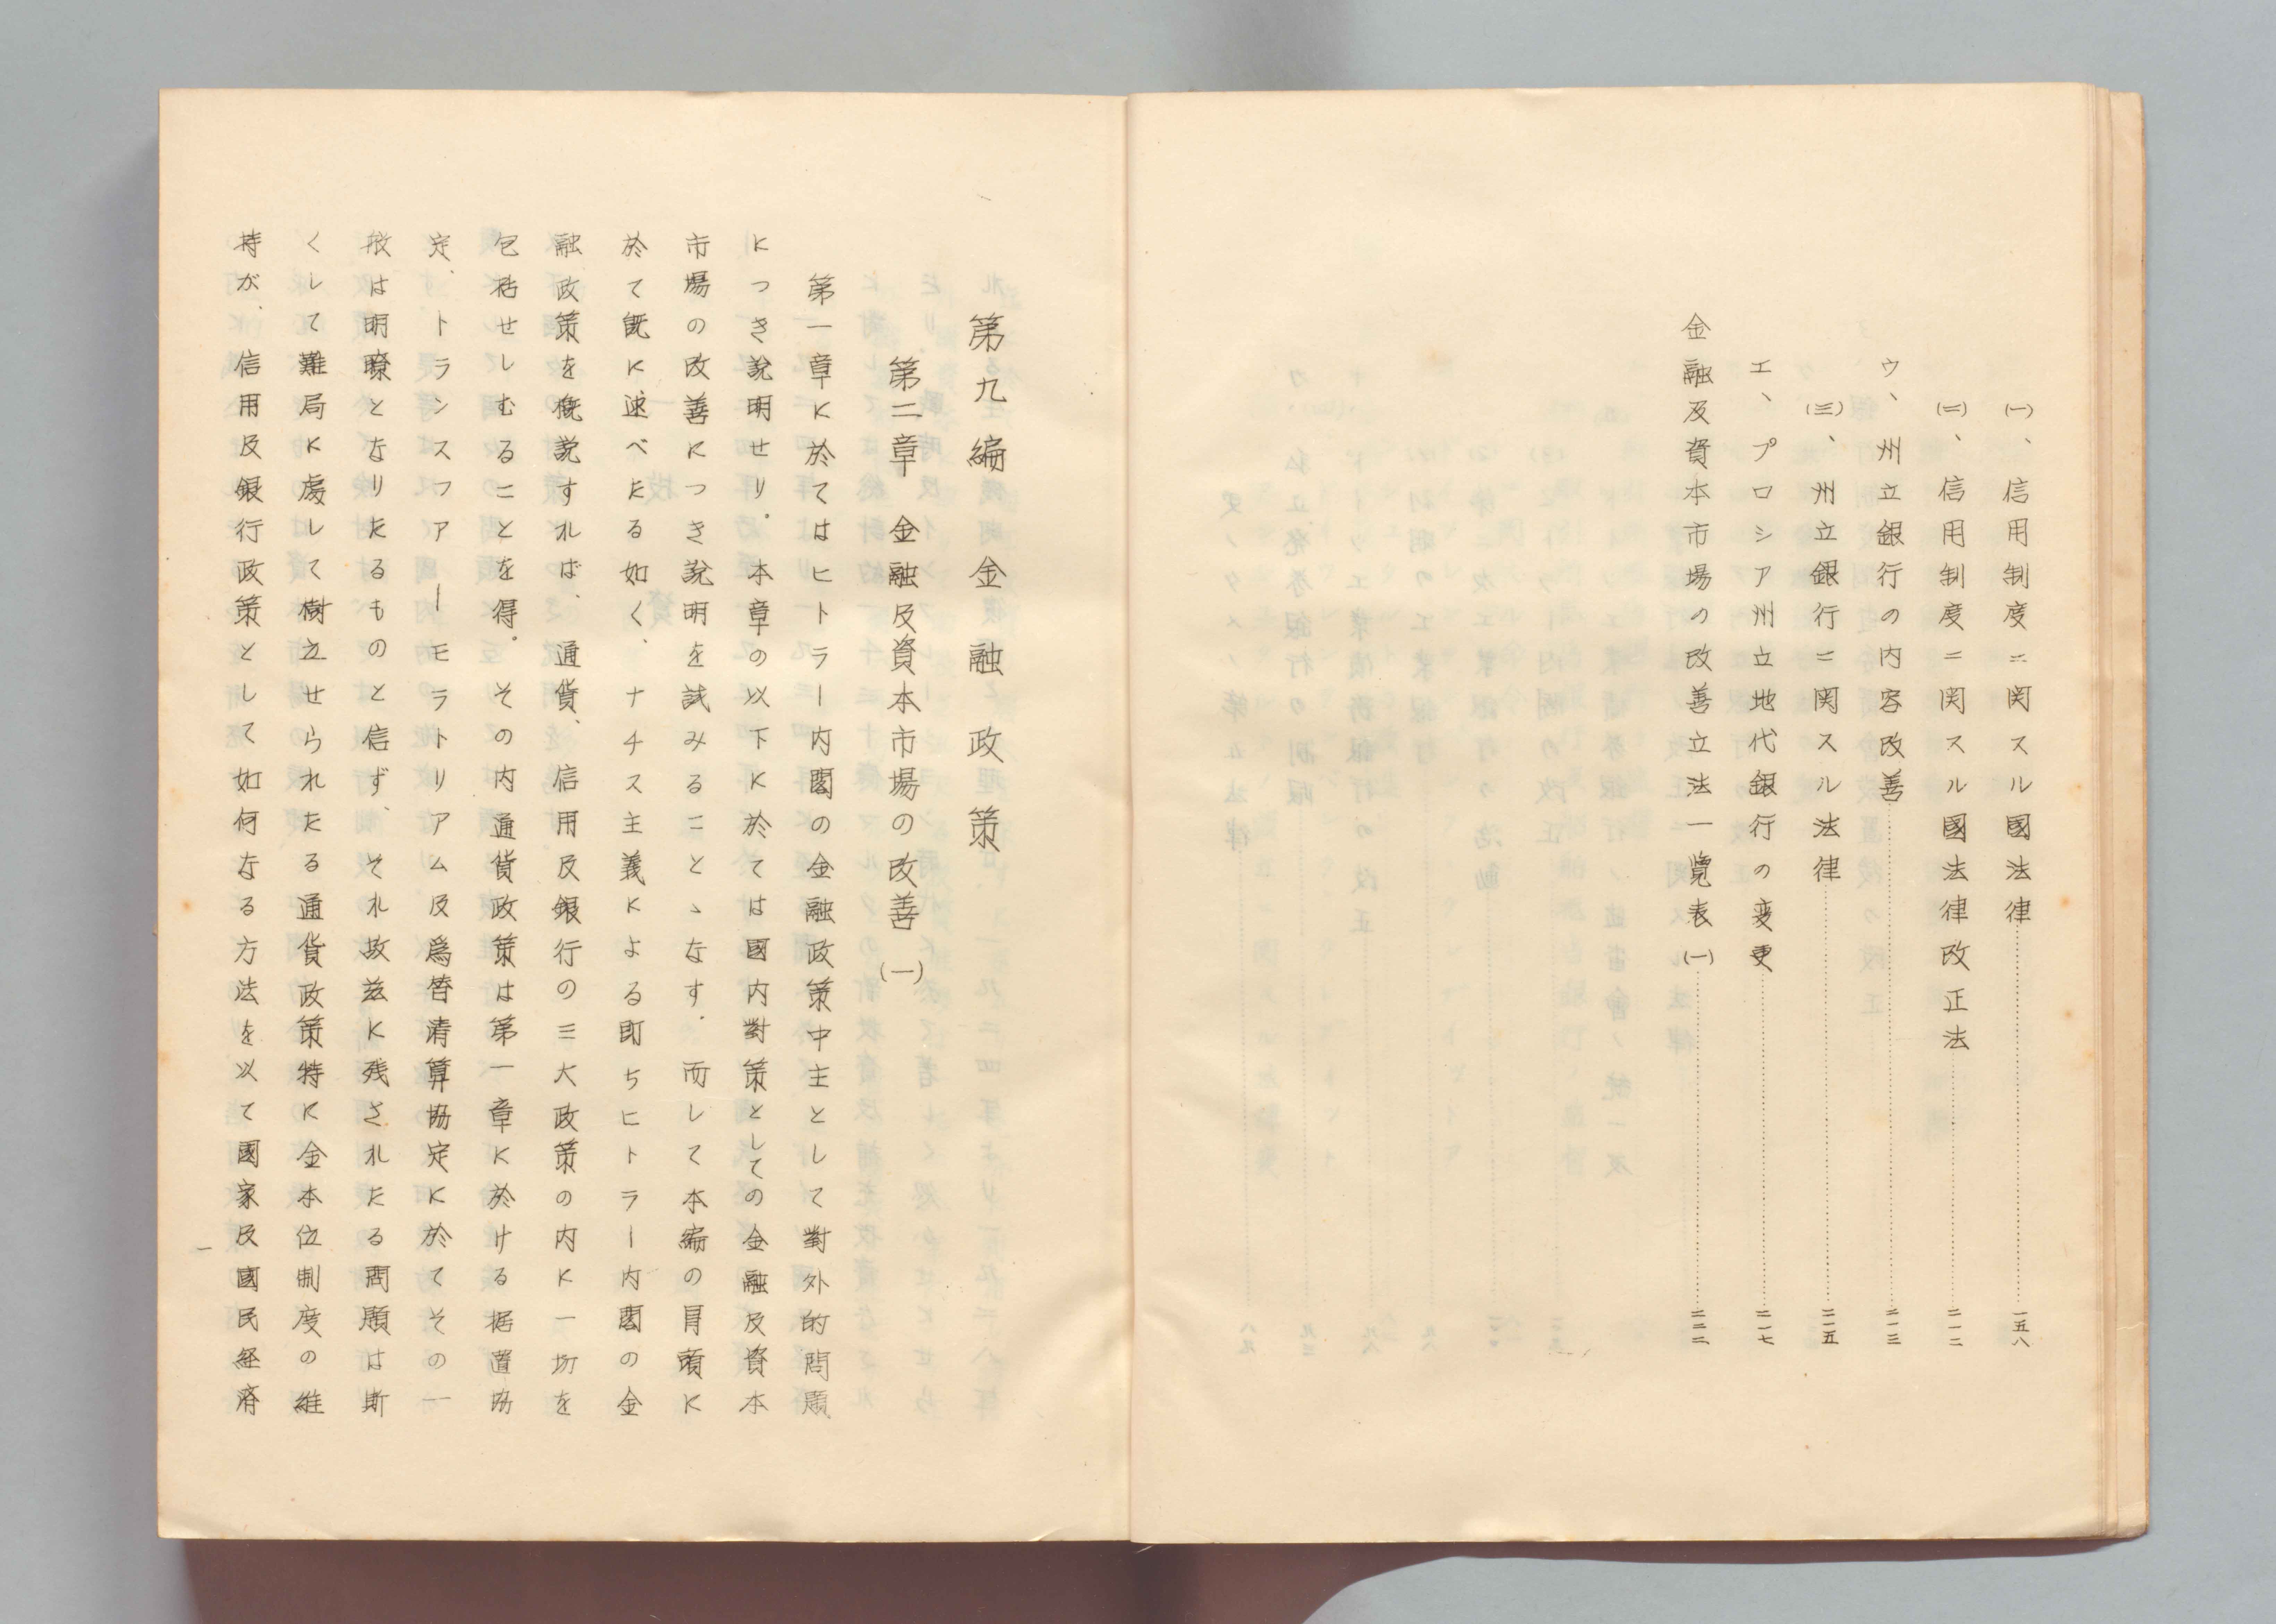 (一)、信用制度ニ関スル國法律……一五八
(二)、信用制度ニ関スル國法律改正法……二一二
ウ、州立銀行の内容改善……二一三
(三)、州立銀行ニ関スル法律……二一五
エ、プロシア州立地代銀行の変更……二一七
金融及資本市場の改善立法一覽表(一)……二二二
第九編 金融政策
第二章 金融及資本市場の改善(一)
第一章に於てはヒトラー内閣の金融政策中主として對外的問題
につき說明せり。本章の以下に於ては國内對策としての金融及資本
市場の改善につき說明を試みることゝなす。而して本編の冐頭に
於て既に速べたる如く、ナチス主義による即ちヒトラー内閣の金
融政策を概説すれば、通貨、信用及銀行の三大政策の内に一切を
包括せしむることを得。その内通貨政策は第一章に於ける据置協
定、トランスファーモラトリアム及爲替清算協定に於てその一
般は明瞭となりたるものと信ず、それ故玆に残されたる問題は斯
くして難局に處して樹立せられたる通貨政策特に金本位制度の維
持が、信用及銀行政策として如何なる方法を以て國家及國民経済
一